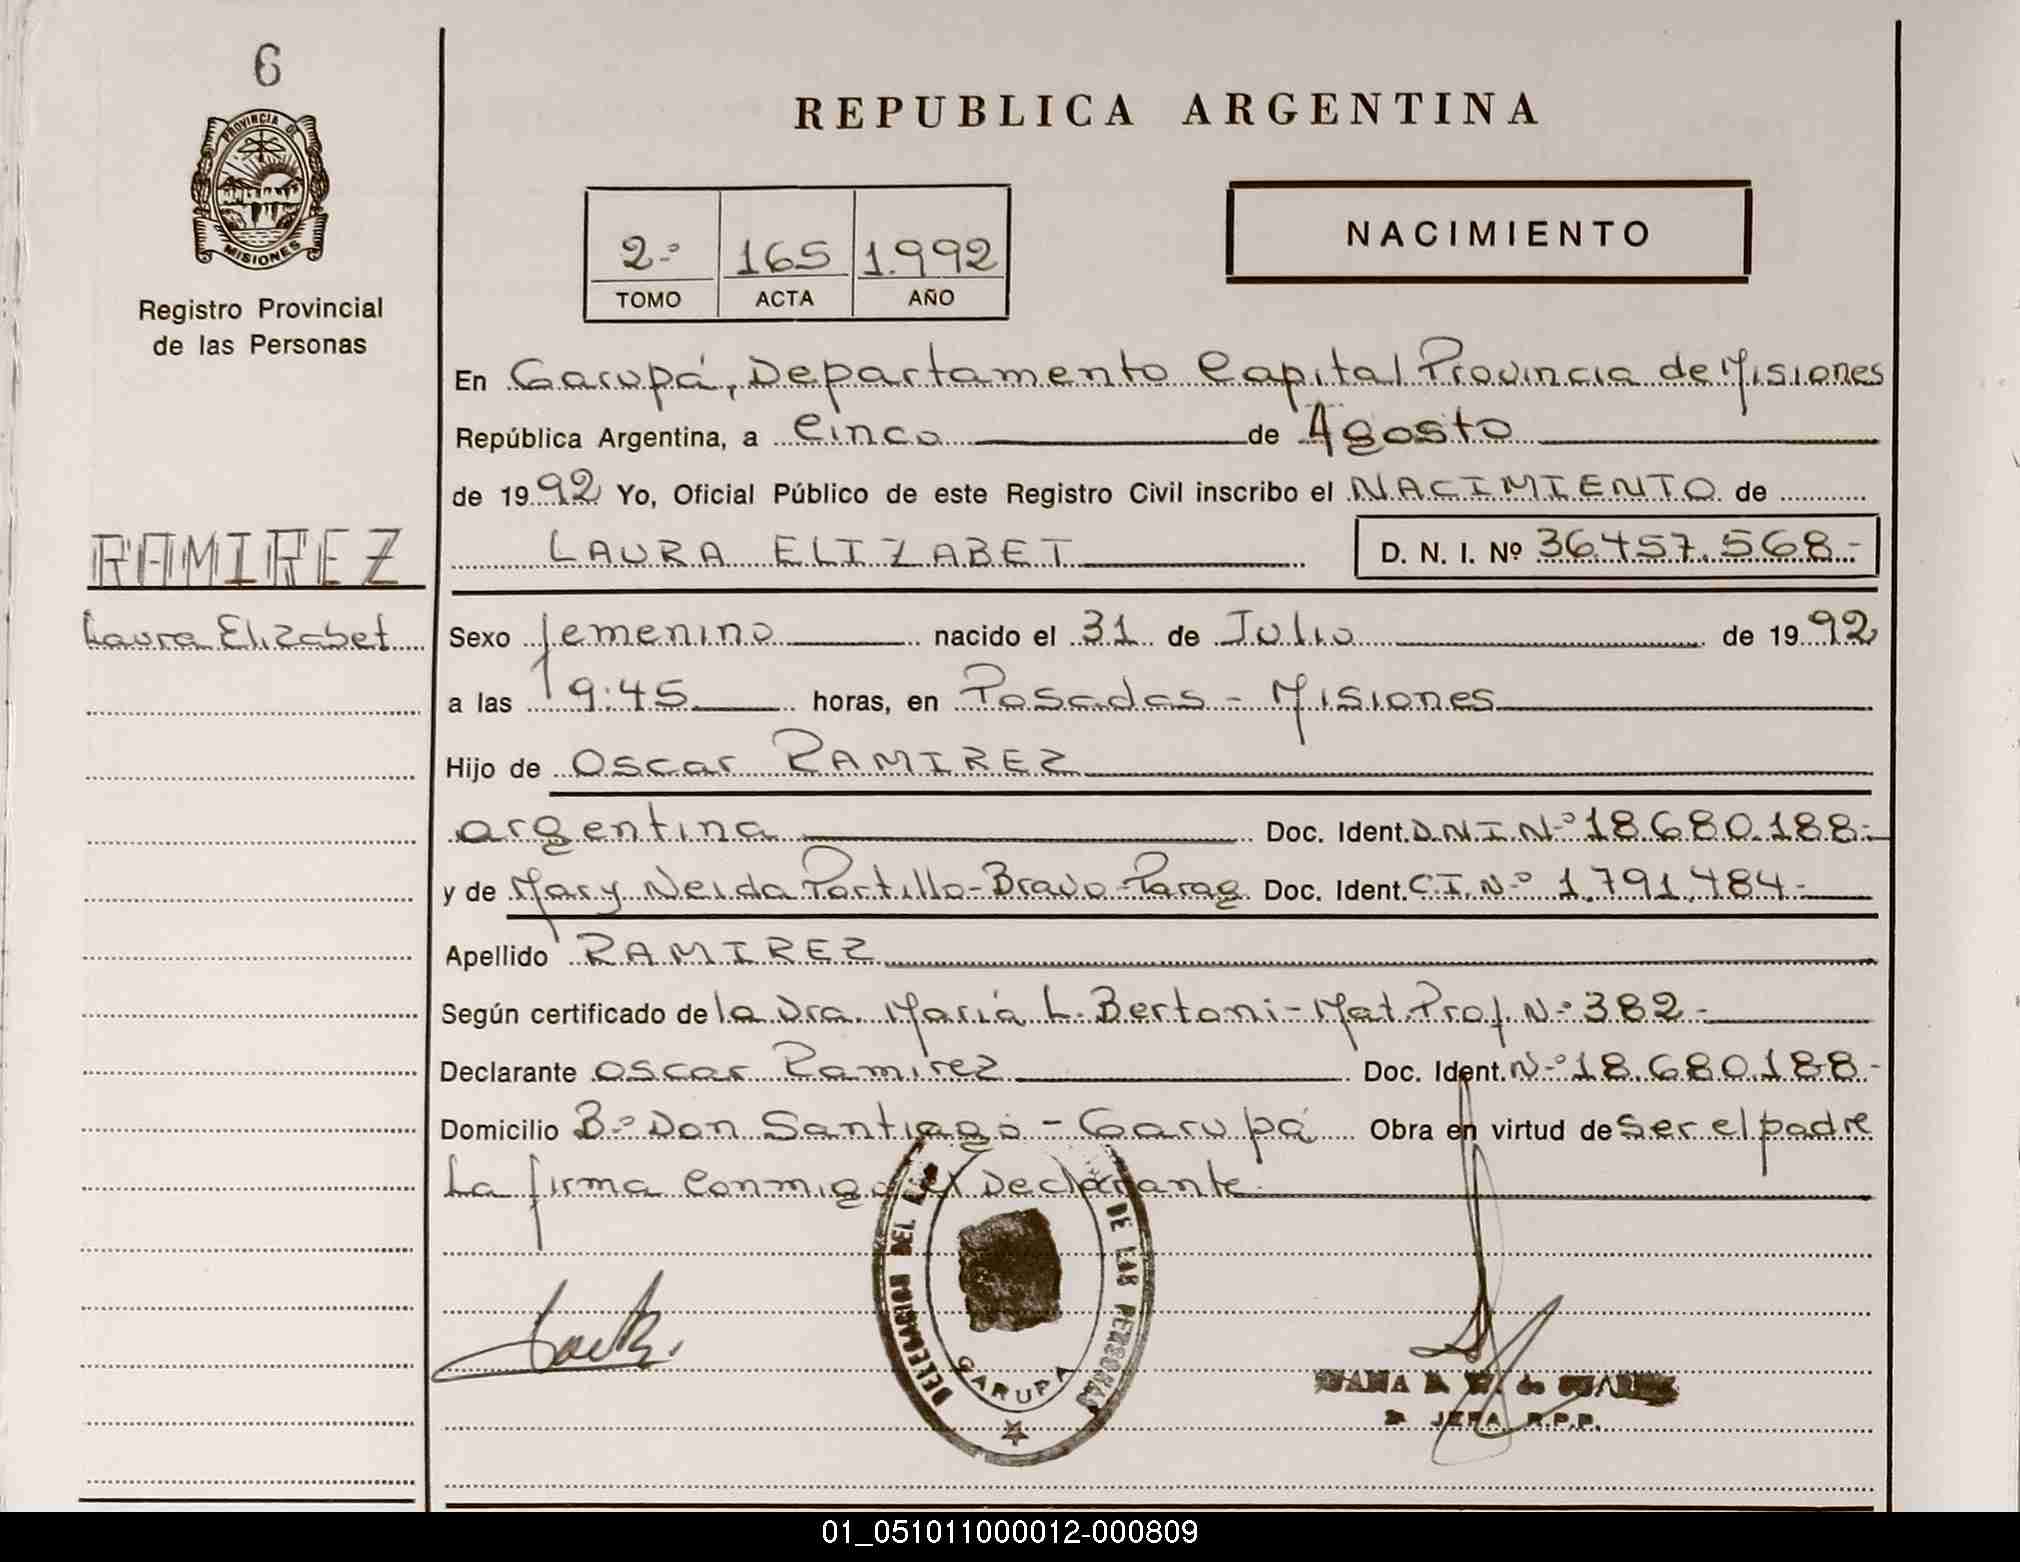 6
PROVINCIA DE
MISIONES
Registro Provincial
de las Personas
RAMIREZ
Laura Elizabet
REPUBLICA ARGENTINA
NACIMIENTO
2º 165 1.992
TOMO ACTA AÑO
En Garupá, Departamento Capital Provincia de Misiones
República Argentina, a Cinco de Agosto
de 1992 Yo, Oficial Público de este Registro Civil inscribo el NACIMIENTO de
LAURA ELIZABET D. N. I. Nº 36.457.568.-
Sexo femenino nacido el 31 de Julio de 1992
a las 19:45 horas, en Posadas - Misiones
Hijo de Oscar RAMIREZ
argentina Doc. Ident. D.N.I.Nº 18.680.188.-
y de Mary Neida Portillo-Bravo-Parag Doc. Ident. C.I.Nº 1.791.484.-
Apellido RAMIREZ
Según certificado de la Dra. María L. Bertoni - Mat. Prof. Nº 382.-
Declarante Oscar Ramirez Doc. Ident. Nº 18.680.188.-
Domicilio Bº Don Santiago - Garupá Obra en virtud de ser el padre
La firma Conmigo el Declarante.
DELEGACION DEL DE LAS PERSONAS
GARUPA
de
JEFA R.P.P.
01_051011000012-000809